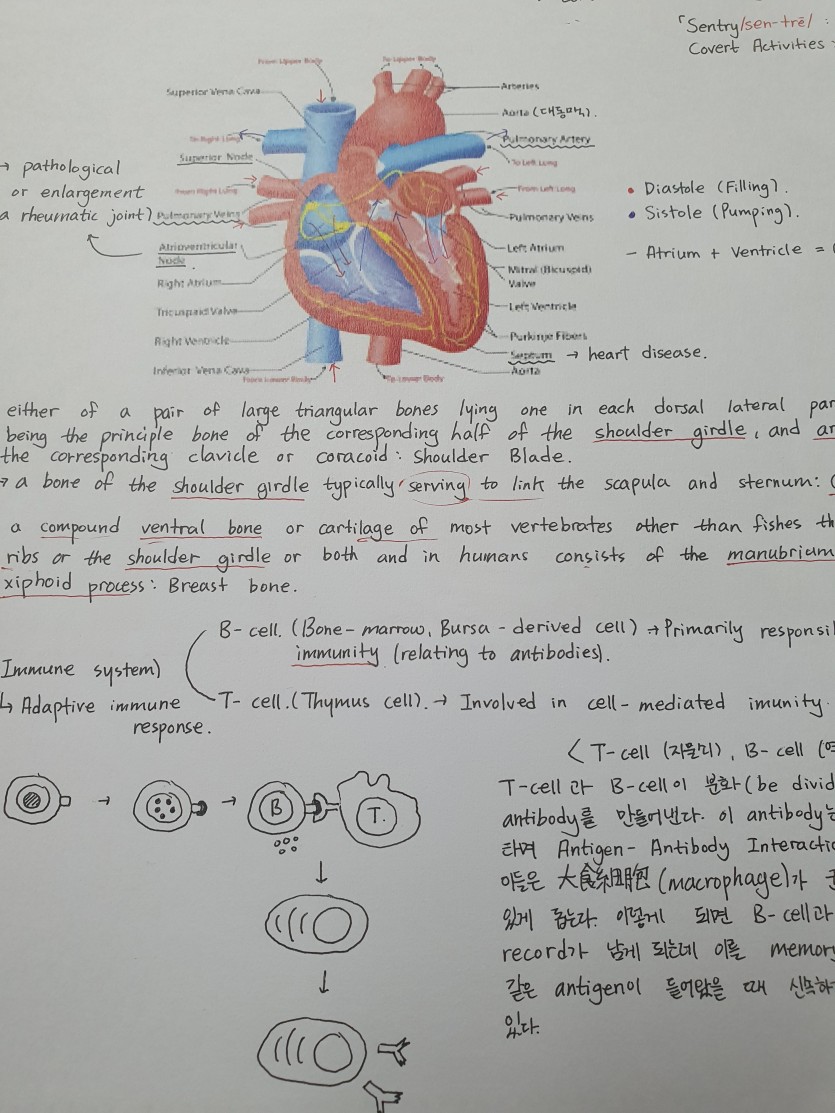 「Sentry/sen-trē/ :
Covert Activities
From Upper Body
To Upper Body
Superior Vena Cava
Arteries
Aorta (대동맥).
To Right Lung
Pulmonary Artery
Superior Node
To Left Lung
→ pathological
or enlargement
a rheumatic joint)
From Right Lung
From Left Lung
• Diastole (Filling).
Pulmonary Veins
Pulmonary Veins
• Sistole (Pumping).
Atrioventricular
Node
Left Atrium
- Atrium + Ventricle =
Right Atrium
Mitral (Bicuspid)
Valve
Tricuspaid Valve
Left Ventricle
Right Ventricle
Purkinje Fibers
Septum → heart disease.
Inferior Vena Cava
Aorta
From Lower Body
To Lower Body
either of a pair of large triangular bones lying one in each dorsal lateral par
being the principle bone of the corresponding half of the shoulder girdle, and ar
the corresponding clavicle or coracoid : Shoulder Blade.
→ a bone of the shoulder girdle typically serving to link the scapula and sternum: (
a compound ventral bone or cartilage of most vertebrates other than fishes th
ribs or the shoulder girdle or both and in humans consists of the manubrium
xiphoid process : Breast bone.
B- cell. (Bone-marrow, Bursa - derived cell) → Primarily responsi
immunity (relating to antibodies).
Immune system)
↳ Adaptive immune
response.
T- cell. (Thymus cell). → Involved in cell-mediated imunity.
< T-cell (자물쇠), B-cell (열
T-cell 과 B-cell이 분화 (be divid
antibody를 만들어낸다. 이 antibody는
하며 Antigen- Antibody Interactio
이들은 大食細胞 (macrophage)가
있게 돕는다. 이렇게 되면 B-cell과
record가 남게 되는데 이를 memory
같은 antigen이 들어왔을 때 신속하
있다.
B
T.